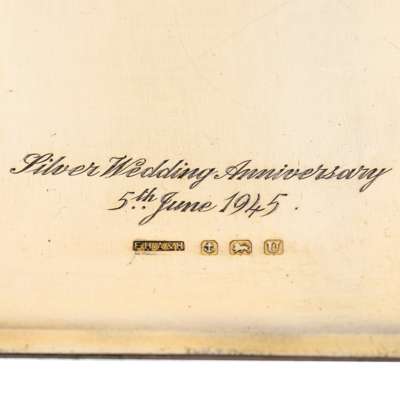 Silver Wedding Anniversary
5th. June 1945.